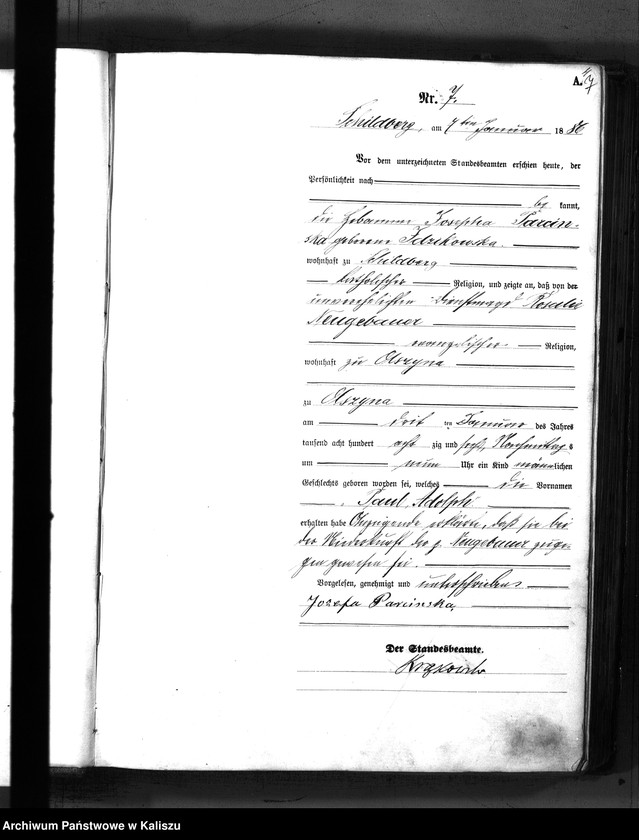 A.
Nr. 7.
Schildberg, am 7ten Januar 1886
Vor dem unterzeichneten Standesbeamten erschien heute, der
Persönlichkeit nach
be kannt,
die Hebamme Josepha Parcin-
ska geborene
wohnhaft zu Schildberg
katholischer Religion, und zeigte an, daß von der
unverehelichten Dienstmagd Rosalie
Neugebauer
evangelischer Religion,
wohnhaft zu Olszyna
zu Olszyna
am drit ten Januar des Jahres
tausend acht hundert acht zig und sechs, Nachmittags
um neun Uhr ein Kind männlichen
Geschlechts geboren worden sei, welches die Vornamen
Paul Adolph
erhalten habe Anzeigende erklärte, daß sie bei
der Niederkunft der p. Neugebauer zuge-
gen gewesen sei.
Vorgelesen, genehmigt und unterschrieben
Josefa Parcinska,
Der Standesbeamte.
Archiwum Państwowe w Kaliszu